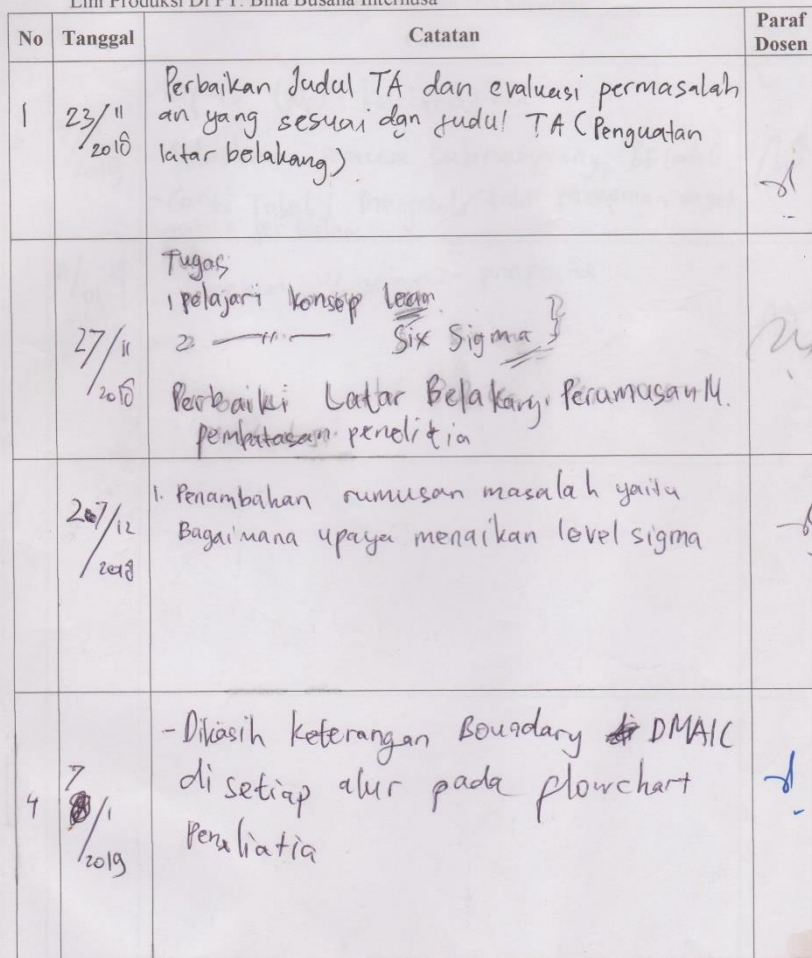 Lini Produksi Di PT. Bina Busana Internusa
No Tanggal Catatan Paraf Dosen
1 23/11 2018 Perbaikan Judul TA dan evaluasi permasalah
an yang sesuai dgn Judul TA (Penguatan
latar belakang)
27/11 2018
Tugas
1 pelajari konsep lean
2 —〃— Six Sigma
Perbaiki Latar Belakang, Perumusan M.
pembatasan penelitia
27/12 2018
1. Penambahan rumusan masalah yaitu
Bagaimana upaya menaikan level sigma
4 7/1 2019
- Dikasih keterangan Boundary DMAIC
di setiap alur pada flowchart
Peneliatia